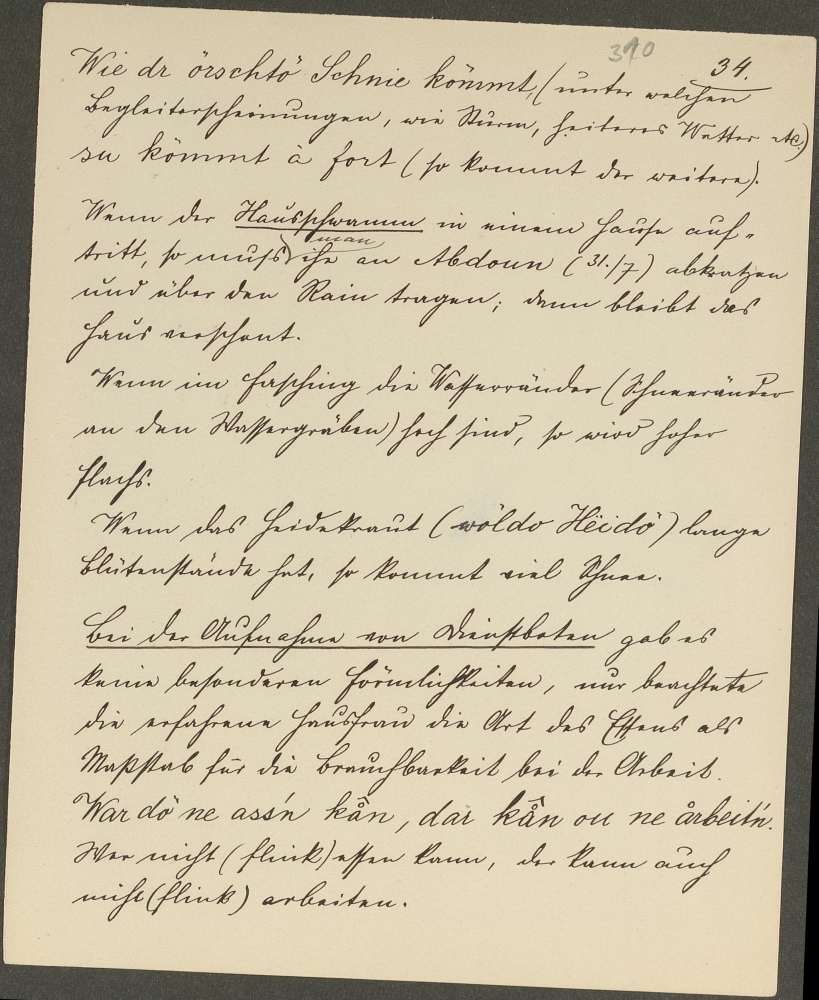 310
34.
Wie dr örschtö Schnie kömmt, (unter welchen
Begleiterscheinungen, wie Sturm, heiteres Wetter etc.)
su kömmt à fort (so kommt der weitere).
Wenn der Hausschwamm in einem Hause auf-
tritt, so muss man ihn an Abdoun (31./7) abkratzen
und über den Rain tragen; dann bleibt das
Haus verschont.
Wenn im Fasching die Wasserränder (Schneeränder
an den Wassergräben) hoch sind, so wird hoher
Flachs.
Wenn das Heidekraut (wöldo Hëidö) lange
Blütenstände hat, so kommt viel Schnee.
Bei der Aufnahme von Dienstboten gab es
keine besonderen Förmlichkeiten, nur beachtete
die erfahrene Hausfrau die Art des Essens als
Maßstab für die Brauchbarkeit bei der Arbeit.
War dö ne ass'n kån, dar kån ou ne årbeit'n.
Wer nicht (flink) essen kann, der kann auch
nicht (flink) arbeiten.